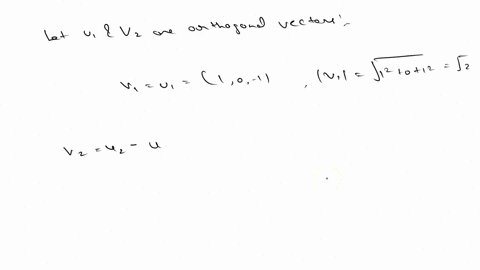 Let v₁ & V₂ are orthogonal vectors:-
v₁ = u₁ = (1, 0, -1) , |v₁| = √1²+0+1² = √2
v₂ = u₂ - u